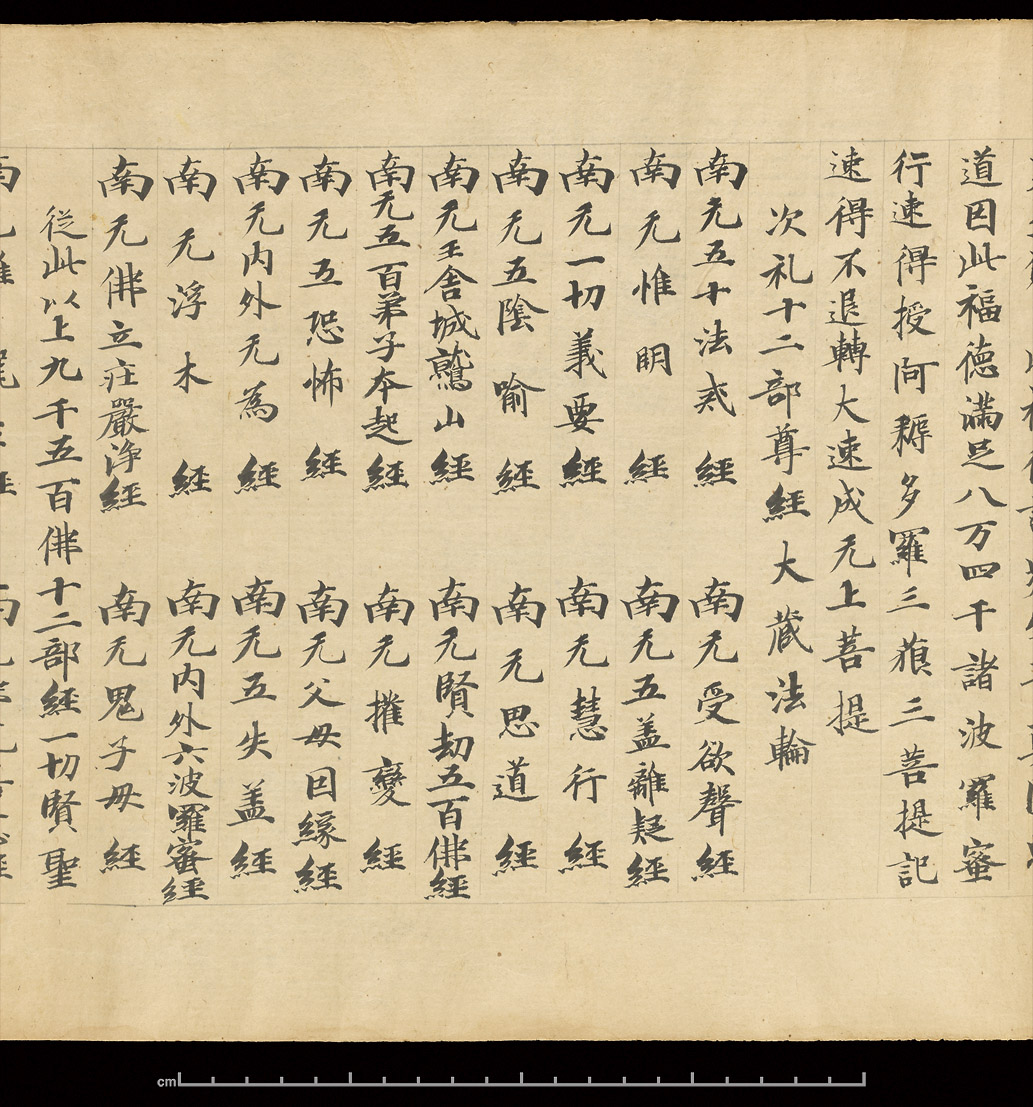 道因此福德滿足八万四千諸波羅蜜
行速得授阿耨多羅三藐三菩提記
速得不退轉大速成无上菩提
次礼十二部尊經大藏法輪
南无五十法戒經 南无受欲聲經
南无惟明經 南无五盖離疑經
南无一切義要經 南无慧行經
南无五陰喻經 南无思道經
南无王舍城鷲山經 南无賢劫五百佛經
南无五百弟子本起經 南无摧變經
南无五恐怖經 南无父母因緣經
南无内外无為經 南无五失盖經
南无浮木經 南无内外六波羅蜜經
南无佛立庄嚴浄經 南无鬼子母經
從此以上九千五百佛十二部經一切賢聖